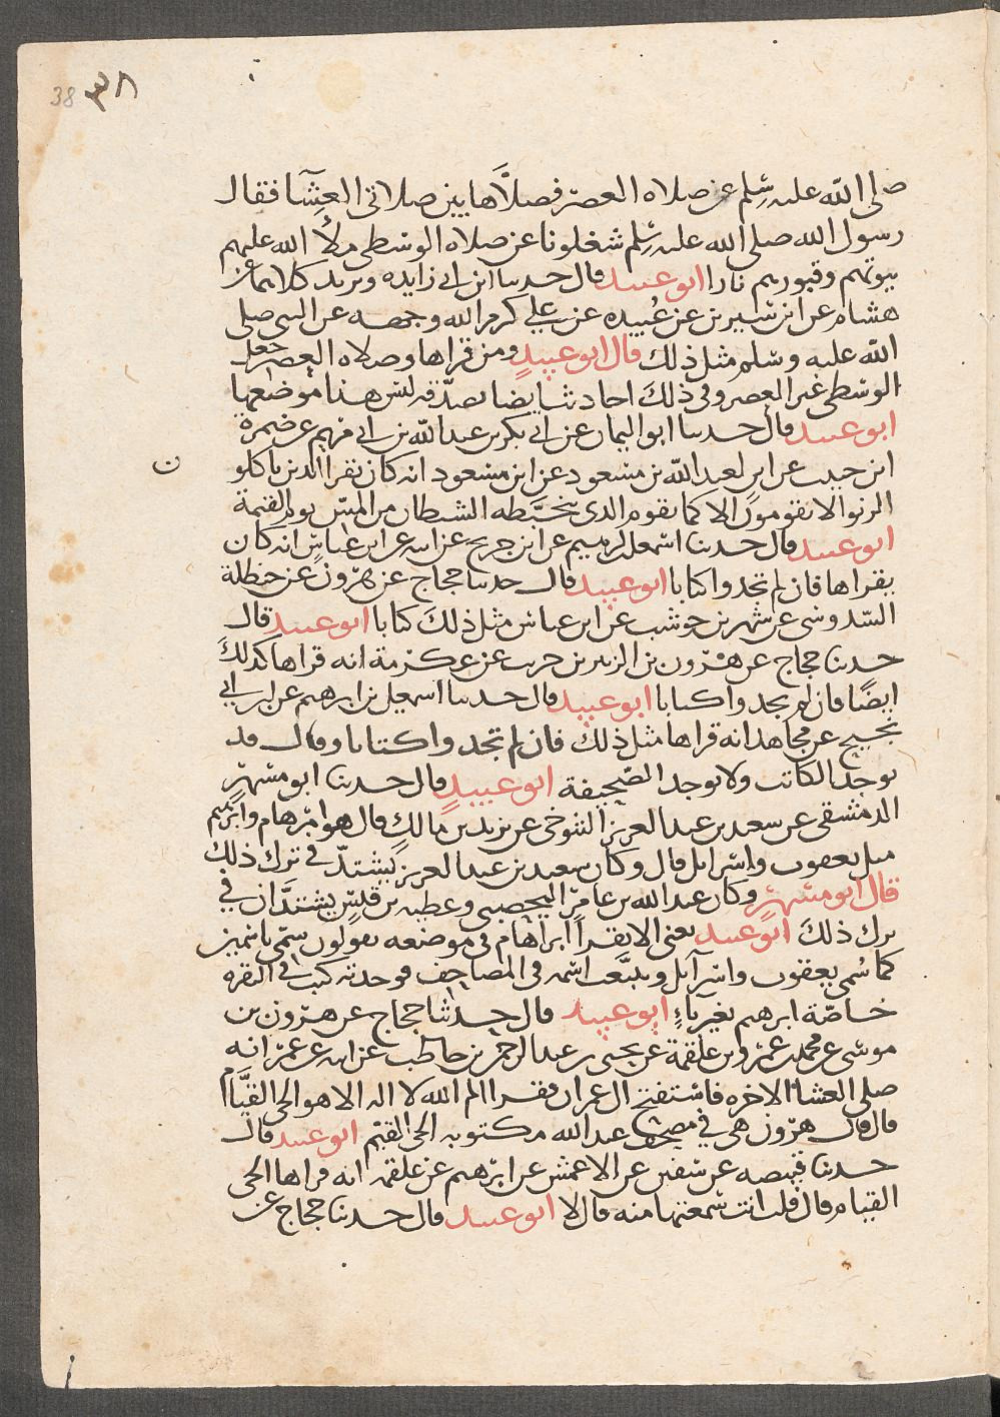 ٣٨ 38
صلى الله عليه وسلم عن صلاه العصر فصلاها بين صلاتى العشا فقال
رسول الله صلى الله عليه وسلم شغلونا عن صلاه الوسطى ملأ الله عليهم
بيوتهم وقبورهم نارا ابو عبيد قال حدثنا ابن ابى زايده ويزيد كلاهما عن
هشام عن ابن سيرين عن عبيده عن على كرم الله وجهه عن النبى صلى
الله عليه وسلم مثل ذلك قال ابو عبيد ومن قراها وصلاه العصر جعل
الوسطى غير العصر وفى ذلك احاديث ايضا تصدقه ليس هذا موضعها
ابو عبيد قال حدثنا ابو اليمان عن ابى بكر بن عبد الله بن ابى مريم عن ضمرة
ابن حبيب عن ابن لعبد الله بن مسعود عن ابن مسعود انه كان يقرا الذين ياكلون
الربوا لا يقومون الا كما يقوم الذى يتخبطه الشيطان من المس يوم القيمة
ابو عبيد قال حدثنا اسمعيل بن ابرهيم عن ابن جريج عن ابيه عن ابن عباس انه كان
يقراها فان لم تجدوا كتابا ابو عبيد قال حدثنا حجاج عن هرون عن حنظلة
السدوسى عن شهر بن حوشب عن ابن عباس مثل ذلك كتابا ابو عبيد قال
حدثنا حجاج عن هرون بن الزبير بن خريت عن عكرمة انه قراها كذلك
ايضا فان لم تجدوا كتابا ابو عبيد قال حدثنا اسمعيل بن ابرهيم عن ابن ابى
نجيح عن مجاهد انه قراها مثل ذلك فان لم تجدوا كتابا وقال قد
يوجد الكاتب ولا توجد الصحيفة ابو عبيد قال حدثنا ابو مسهر
الدمشقى عن سعيد بن عبد العزيز التنوخى عن يزيد بن مالك قال هو ابرهام وابرهيم
مثل يعقوب واسرايل قال وكان سعيد بن عبد العزيز يشتد فى ترك ذلك
قال ابو مسهر وكان عبد الله بن عامر اليحصبى وعطيه بن قيس يشتدان فى
ترك ذلك ابو عبيد يعنى الا يقرا ابراهام فى موضعه يقولون سمى باسمين
كما سمى يعقوب واسرآيل وتتبعت اسمه فى المصاحف فوجدته كتب فى البقره
خاصة ابرهم بغير ياء ابو عبيد قال حدثنا حجاج عن هرون بن
موسى عن محمد بن عمرو بن علقمة عن يحيى بن عبد الرحمن بن حاطب عن ابيه عن عمر انه
صلى العشا الاخره فاستفتح ال عمران فقرا الم الله لا اله الا هو الحى القيام
قال قال هرون هى فى مصحف عبد الله مكتوبه الحى القيم ابو عبيد قال
حدثنا قبيصه عن سفين عن الاعمش عن ابرهيم عن علقمه انه قراها الحى
القيام قال قلت انت سمعتها منه قال لا ابو عبيد قال حدثنا حجاج عن